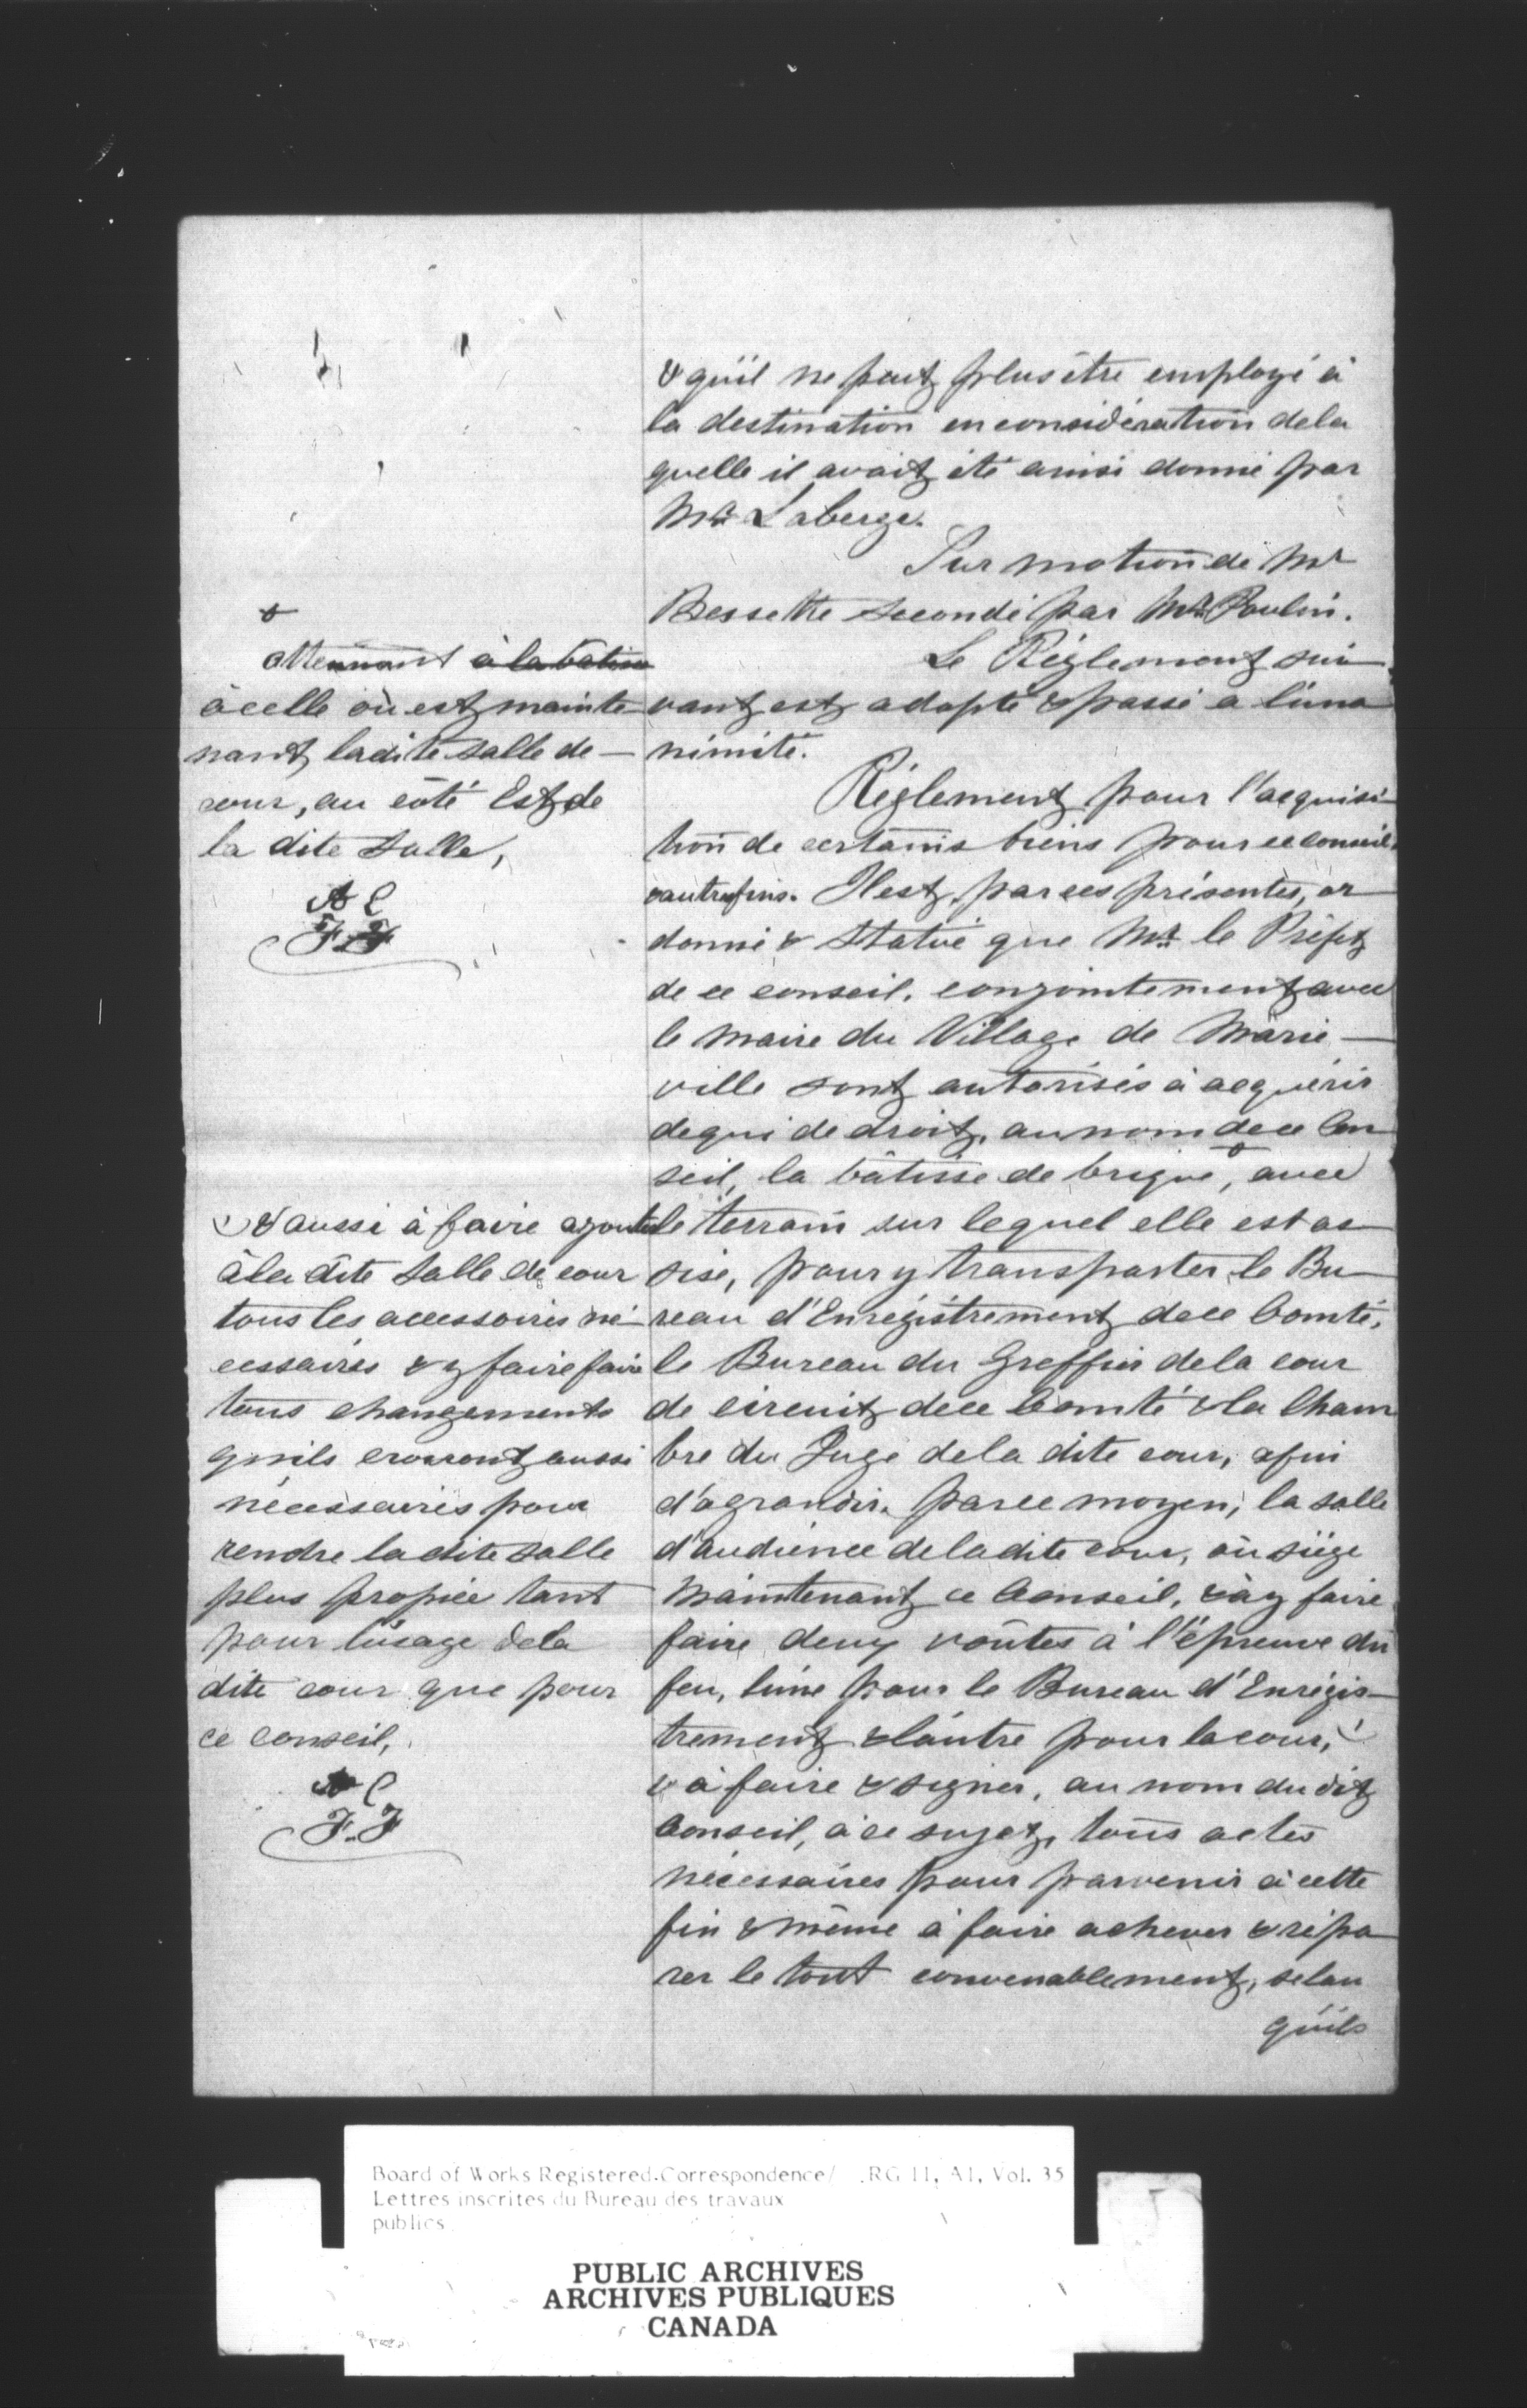 & qu'il ne peut plus être employé à
la destination en considération de la
quelle il avait été ainsi donné par
Mr. Laberge.
Sur motion de Mr
Bessette secondé par Mr. Poulin.
Le Règlement sui
vant est adopté & passé a l'una
nimité.
Règlement pour l'acquisi-
tion de certains biens pour ce conseil
& autres fins. Il est, par ces présentes, or
donné & statué que Mr. le Préfet
de ce conseil, conjointement avec
le maire du Village de Marie-
ville sont autorisés à acquérir
de qui de droit, au nom de ce Con
seil, la bâtisse de brique, avec
le terrain sur lequel elle est as
sise, pour y transporter le Bu-
reau d'Enrégistrement de ce Comté,
le Bureau du Greffier de la cour
de circuit de ce Comté & la Cham
bre du Juge de la dite cour, afin
d'agrandir, par ce moyen, la salle
d'audience de la dite cour, où siège
maintenant ce Conseil, & à y faire
faire deux voûtes à l'épreuve du
feu, l'une pour le Bureau d'Enrégis-
trement & l'autre pour la cour,
& à faire & signer, au nom du dit
Conseil, à ce sujet, tous actes
nécessaires pour parvenir à cette
fin & même à faire achever & répa
rer le tout convenablement, selon
qu'ils
attenant à la batisse
à celle où est mainte
nant, la dite salle de -
cour, au côté Est de
la dite salle,
F. F
& aussi à faire ajouter
à la dite salle de cour
tous les accessoires né-
cessaires & y faire faire
tous changements
qu'ils croiront aussi
nécessaires pour
rendre la dite salle
plus propice tant
pour l'usage de la
dite cour que pour
ce conseil,
F. F
Board of Works Registered Correspondence/ RG 11, A1, Vol. 35
Lettres inscrites du Bureau des travaux
publics
PUBLIC ARCHIVES
ARCHIVES PUBLIQUES
CANADA